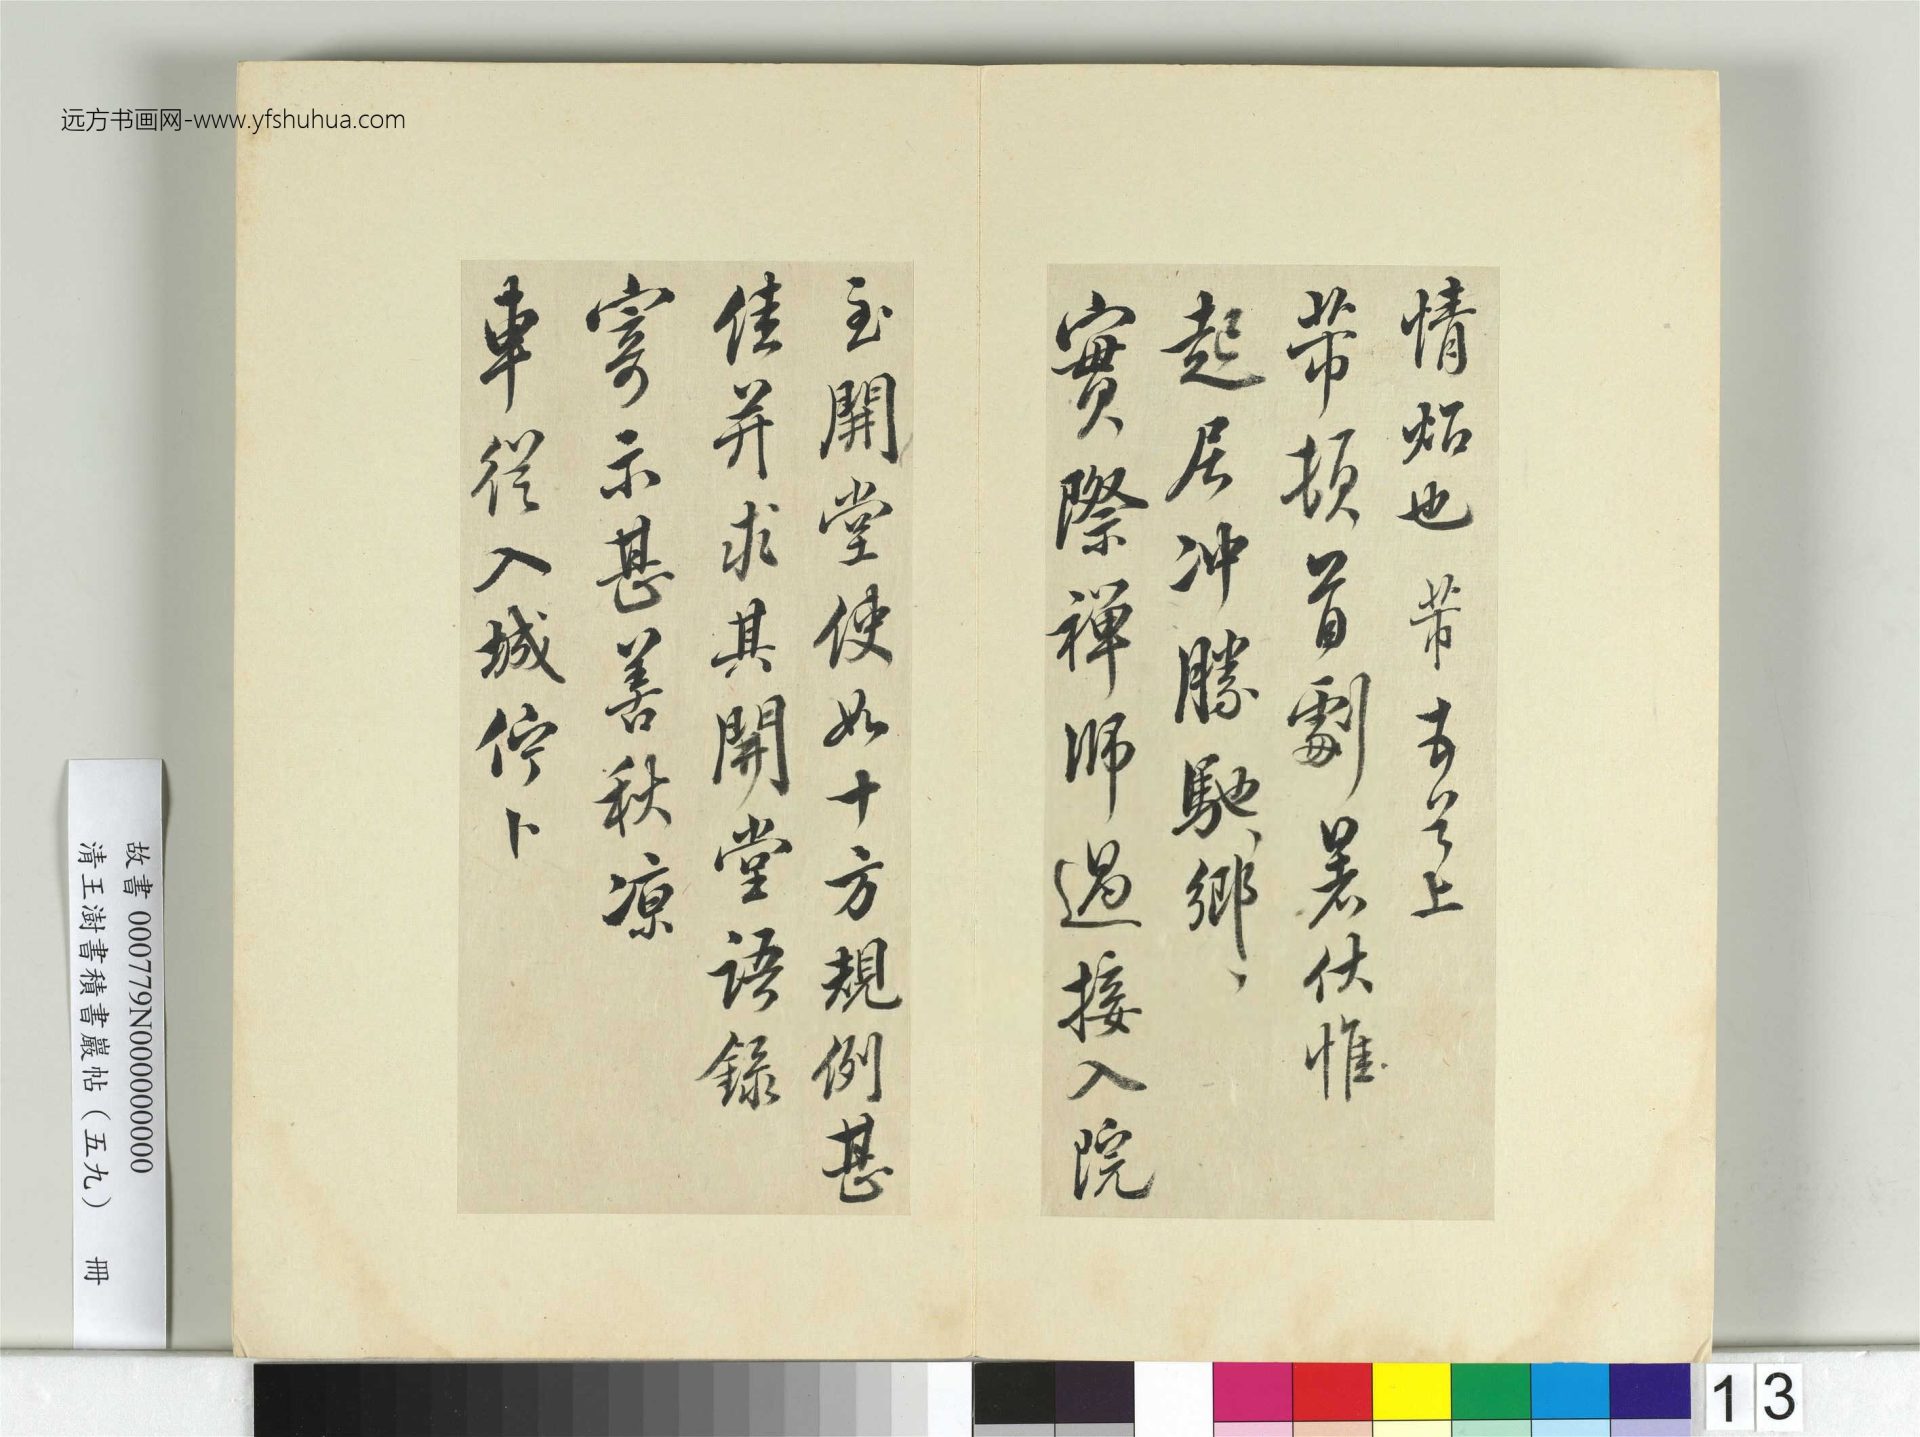 远方书画网-www.yfshuhua.com
情照也 芾 者之上
芾頓首劇暑伏惟
起居沖勝馳、鄉、
實際禪師過接入院
至開堂使如十方規例甚
佳并求其開堂語錄
寄示甚善秋凉
車從入城佇卜
故書 000779N000000000
清王澍書積書巖帖（五九） 冊
13